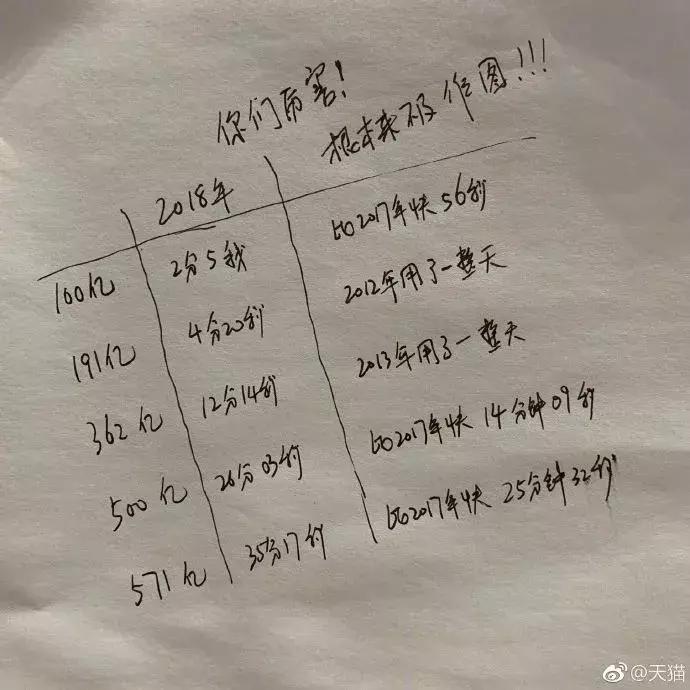 你们厉害!
根本来不及作图!!!
2018年
100亿 2分5秒 比2017年快56秒
191亿 4分20秒 2012年用了一整天
362亿 12分14秒 2013年用了一整天
500亿 26分03秒 比2017年快14分钟09秒
571亿 35分17秒 比2017年快25分钟32秒
@天猫